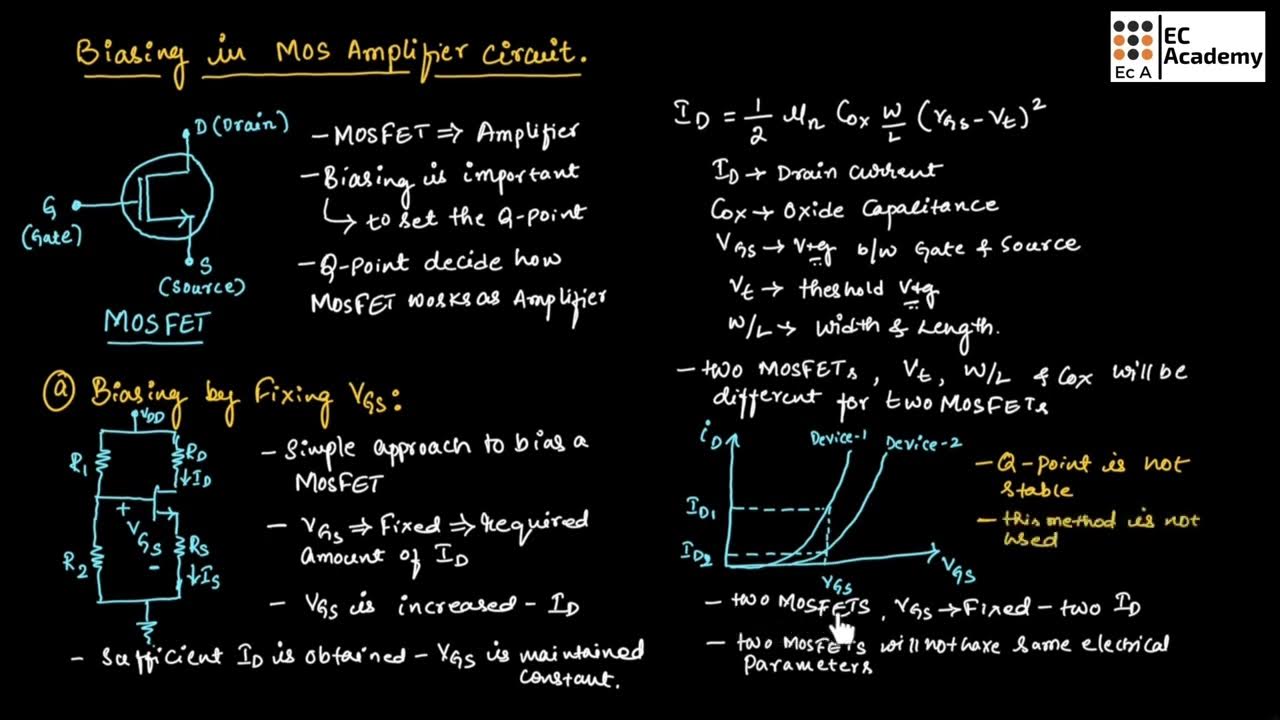 Biasing in MOS Amplifier circuit.
EC Academy
Ec A
D (Drain)
G (Gate)
S (Source)
MOSFET
- MOSFET ⇒ Amplifier
- Biasing is important
↳ to set the Q-point
- Q-Point decide how
MOSFET works as Amplifier
I_D = 1/2 μn Cox W/L (VGS - Vt)²
ID → Drain current
Cox → Oxide Capacitance
VGS → Vtg b/w Gate & Source
Vt → theshold Vtg
W/L → Width & Length.
- two MOSFETs, Vt, W/L & Cox will be
different for two MOSFETs
(a) Biasing by Fixing VGS:
VDD
R1
RD
↓ID
+
VGS
-
R2
RS
↓IS
- Simple approach to bias a
MOSFET
- VGS ⇒ Fixed ⇒ required
amount of ID
- VGS is increased - ID
- Sufficient ID is obtained - VGS is maintained
constant.
iD
Device-1
Device-2
ID1
ID2
VGS
VGS
- Q-point is not
stable
- this method is not
used
- two MOSFETS, VGS → Fixed - two ID
- two MOSFETS will not have same electrical
Parameters